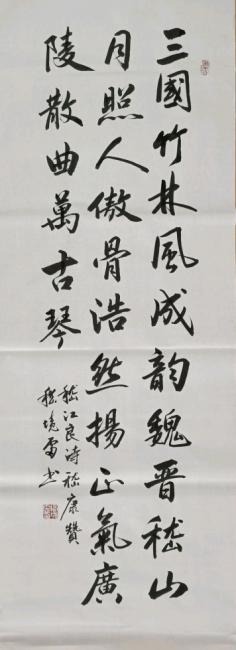 三國竹林風成韵魏晋嵇山
月照人傲骨浩然揚正氣廣
陵散曲萬古琴
嵇江良诗嵇康贊
嵇境雷书